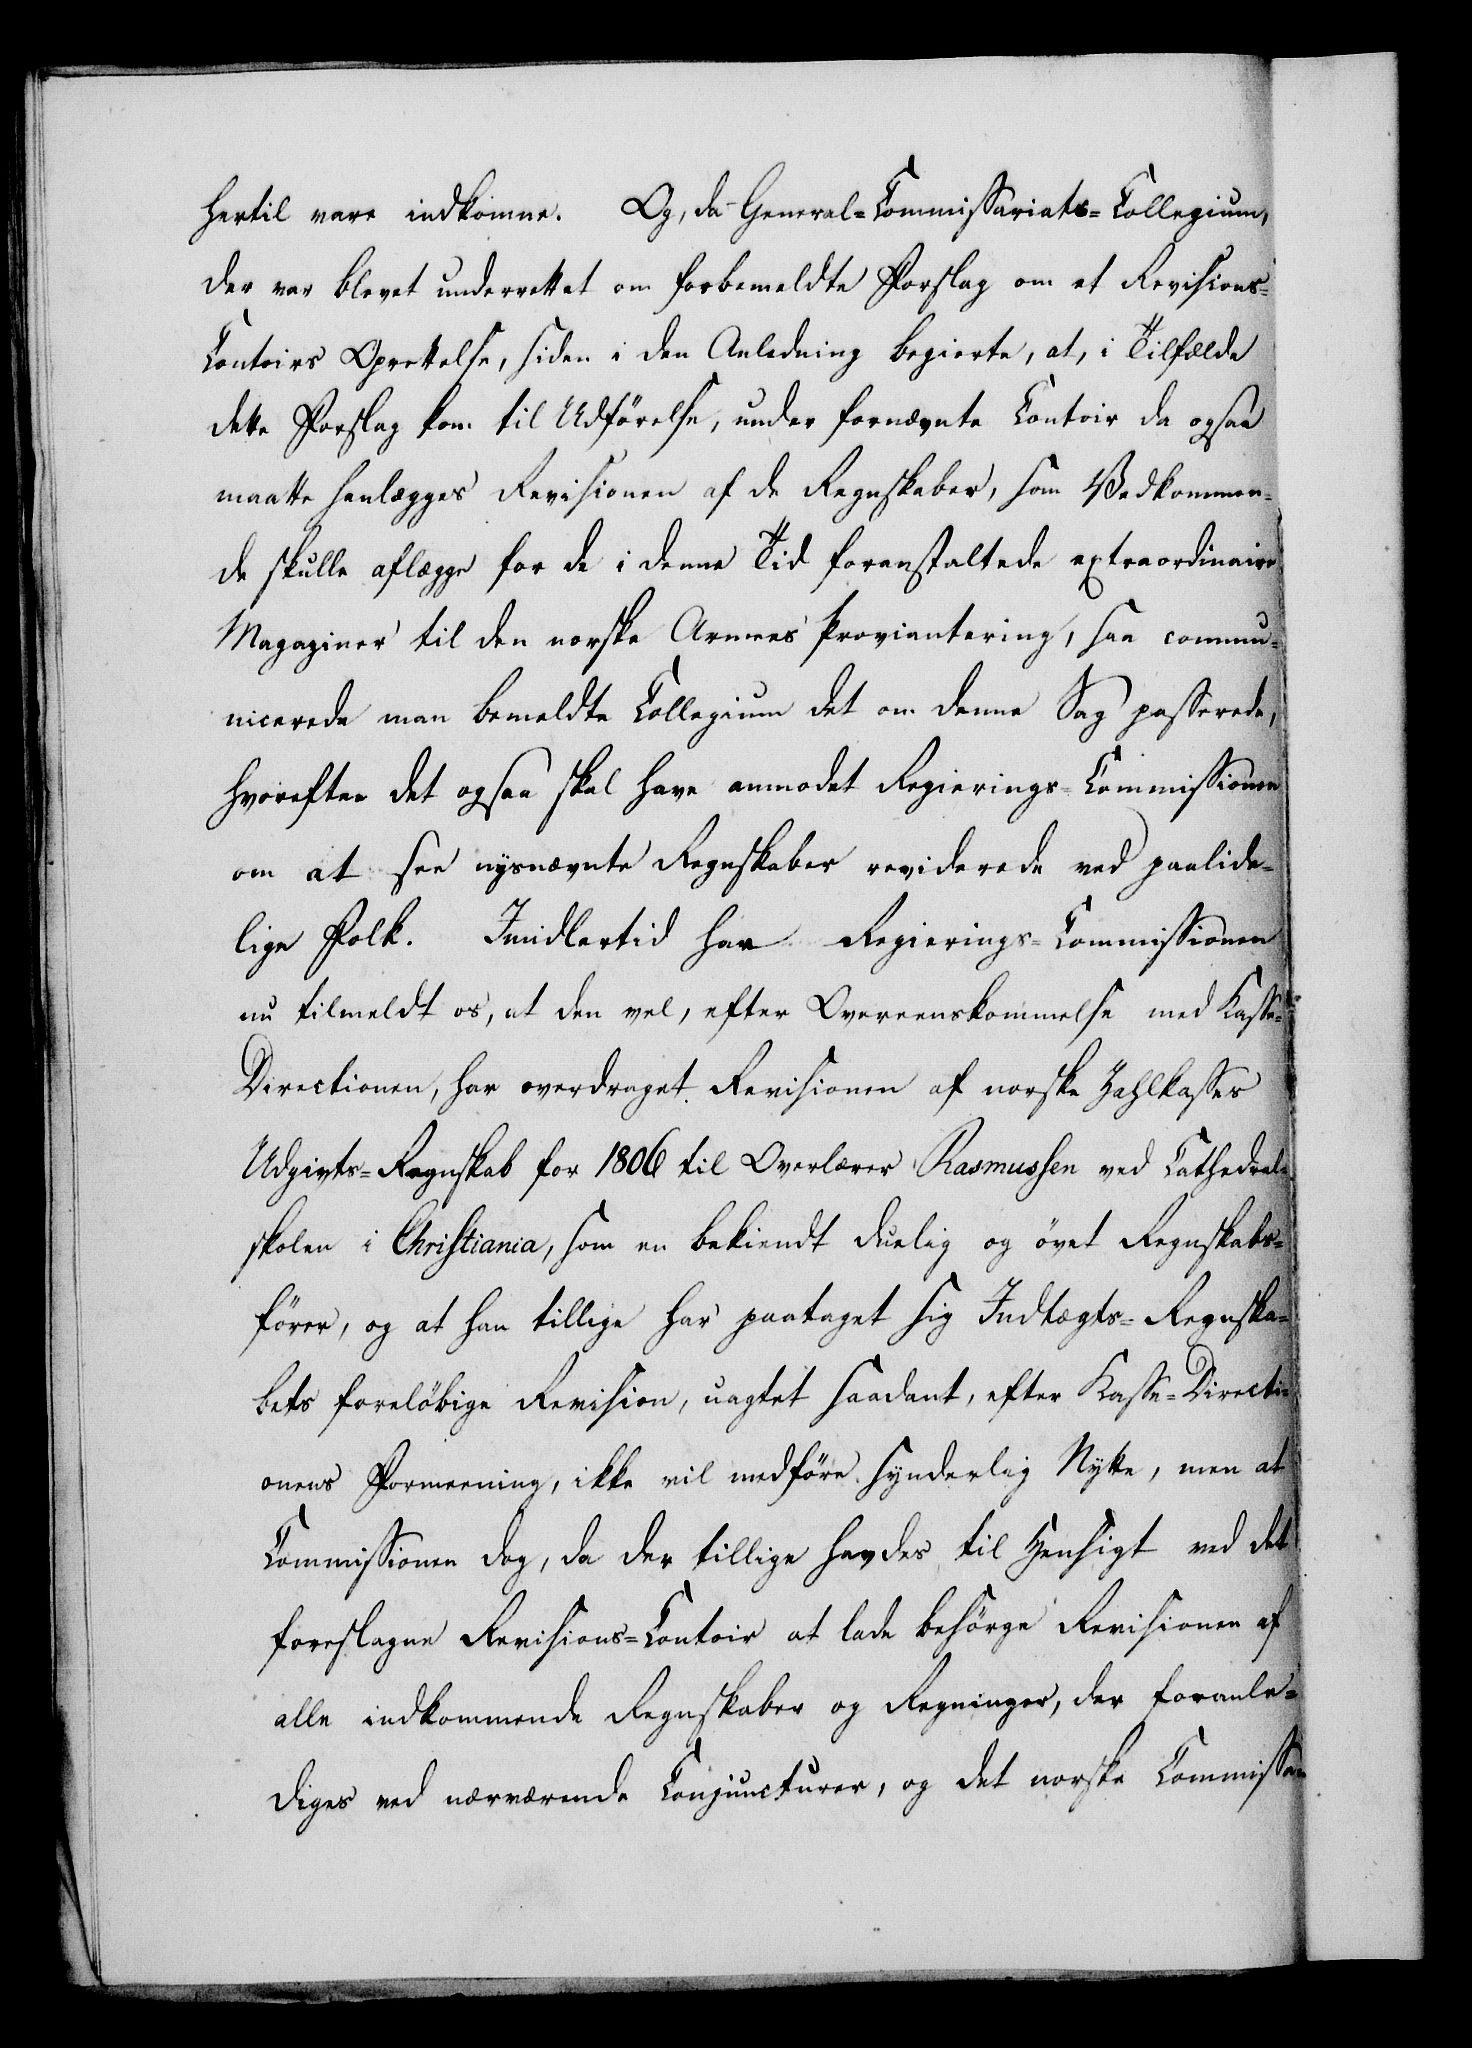 hertil vare indkomne. Og, da General-Commissariats-Collegium,
der var blevet underrettet om forbemeldte Forslag om et Revisions-
Contoirs Oprettelse, siden i den Anledning begierte, at, i Tilfælde
dette Forslag kom til Udförelse, under fornævnte Contoir da ogsaa
maatte henlægges Revisionen af de Regnskaber, som Vedkommen-
de skulle aflægge for de i denne Tid foranstaltede extraordinaire
Magaziner til den norske Armees Proviantering, saa commu-
nicerede man bemeldte Collegium det om denne Sag passerede,
hvorefter det ogsaa skal have anmodet Regierings-Commissionen
om at see nysnævnte Regnskaber reviderede ved paalide-
lige Folk. Imidlertid har Regierings-Commissionen
nu tilmeldt os, at den vel, efter Overeenskommelse med Kasse-
Directionen, har overdraget Revisionen af norske Zahlkasses
Udgivts-Regnskab for 1806 til Overlærer Rasmussen ved Cathedral-
skolen i Christiania, som en bekiendt duelig og övet Regnskabs-
förer, og at han tillige har paataget sig Indtægts-Regnska-
bets foreløbige Revision, uagtet saadant, efter Kasse-Directi-
onens Formeening, ikke vil medföre synderlig Nytte, men at
Commissionen dog, da der tillige havdes til Hensigt ved det
foreslagne Revisions-Contoir at lade besörge Revisionen af
alle indkommende Regnskaber og Regninger, der foranle-
diges ved nærværende Conjuncturer, og det norske Commissa-